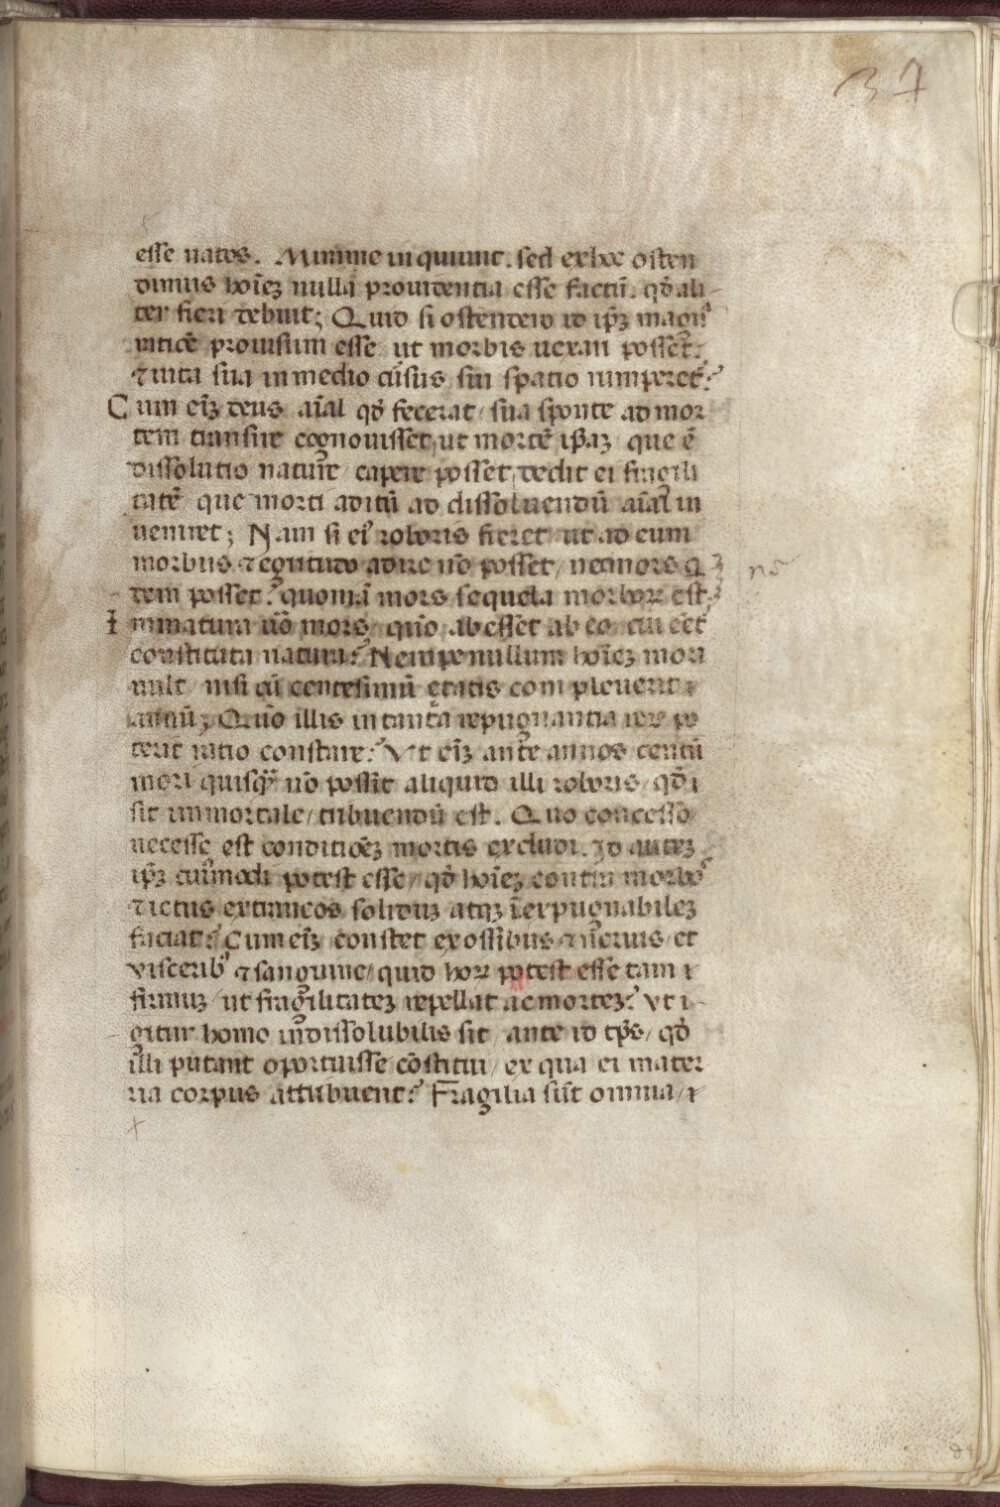 37
esse natos. Minime inquiunt. sed ex hoc osten
dimus hoīeꝫ nullā prouidentia esse factū. qđ ali-
ter fieri debuit; Quid si ostendero id ip̄ꝫ magis
inticē prouisum esse ut morbis uexari posset.
⁊ uita sua in medio cūsus sui spatio rumperet?
Cum eīꝫ deus aīal qđ fecerat / sua sponte ad mor
tem transire cognouisset, ut mortē ip̄aꝫ que ē
dissolutio nature capere posset, dedit ei fragili
tatē que morti aditū ad dissoluendū aīal in
ueniret; Nam si ei roboris fieret ut ad eum
morbus ⁊ egritudo adire nō posset / nec mors q
dem posset? quoniā mors sequela morboꝝ est
Immatura uō mors quō abesset ab eo cui eēt
constituta natura? Nempe nullum hoīeꝫ mori
uult nisi cū centesimū etatis compleuerit
annū; Quō illis in tanta repugnantia reꝝ po
terit ratio constare? Vt eīꝫ ante annos centū
mori quisqꝫ nō possit aliquid illi roboris / qđ
sit immortale / tribuendū est. Quo concesso
necesse est conditiōeꝫ mortis excludi. Id auteꝫ
ip̄ꝫ cuīmodi potest esse / qđ hoīeꝫ contra morbos
⁊ ictus extrinecos soliduꝫ atqꝫ īexpugnabileꝫ
faciat? Cum eīꝫ constet ex ossibus ⁊ neruis / et
viscerib' ⁊ sanguine / quid hoꝝ potest esse tam
firmuꝫ / ut fragilitateꝫ repellat ac morteꝫ? Vt i-
gitur homo indissolubilis sit ante id tp̄s / qđ
illi putant oportuisse cōstitui / ex qua ei mater
ria corpus attribuent? Fragilia sūt omnia /